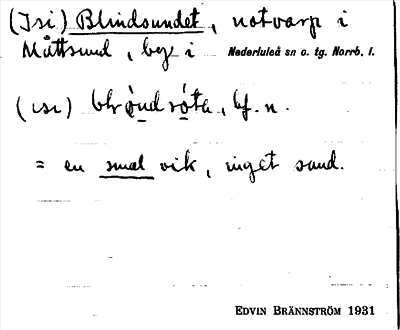 (Isi) Blindsundet, notvarp i
Måttsund, bege i Nederluleå sn o. tg. Norrb. l.
(ısı) bf. n.
= en smal vik, inget sund.
EDVIN BRÄNNSTRÖM 1931